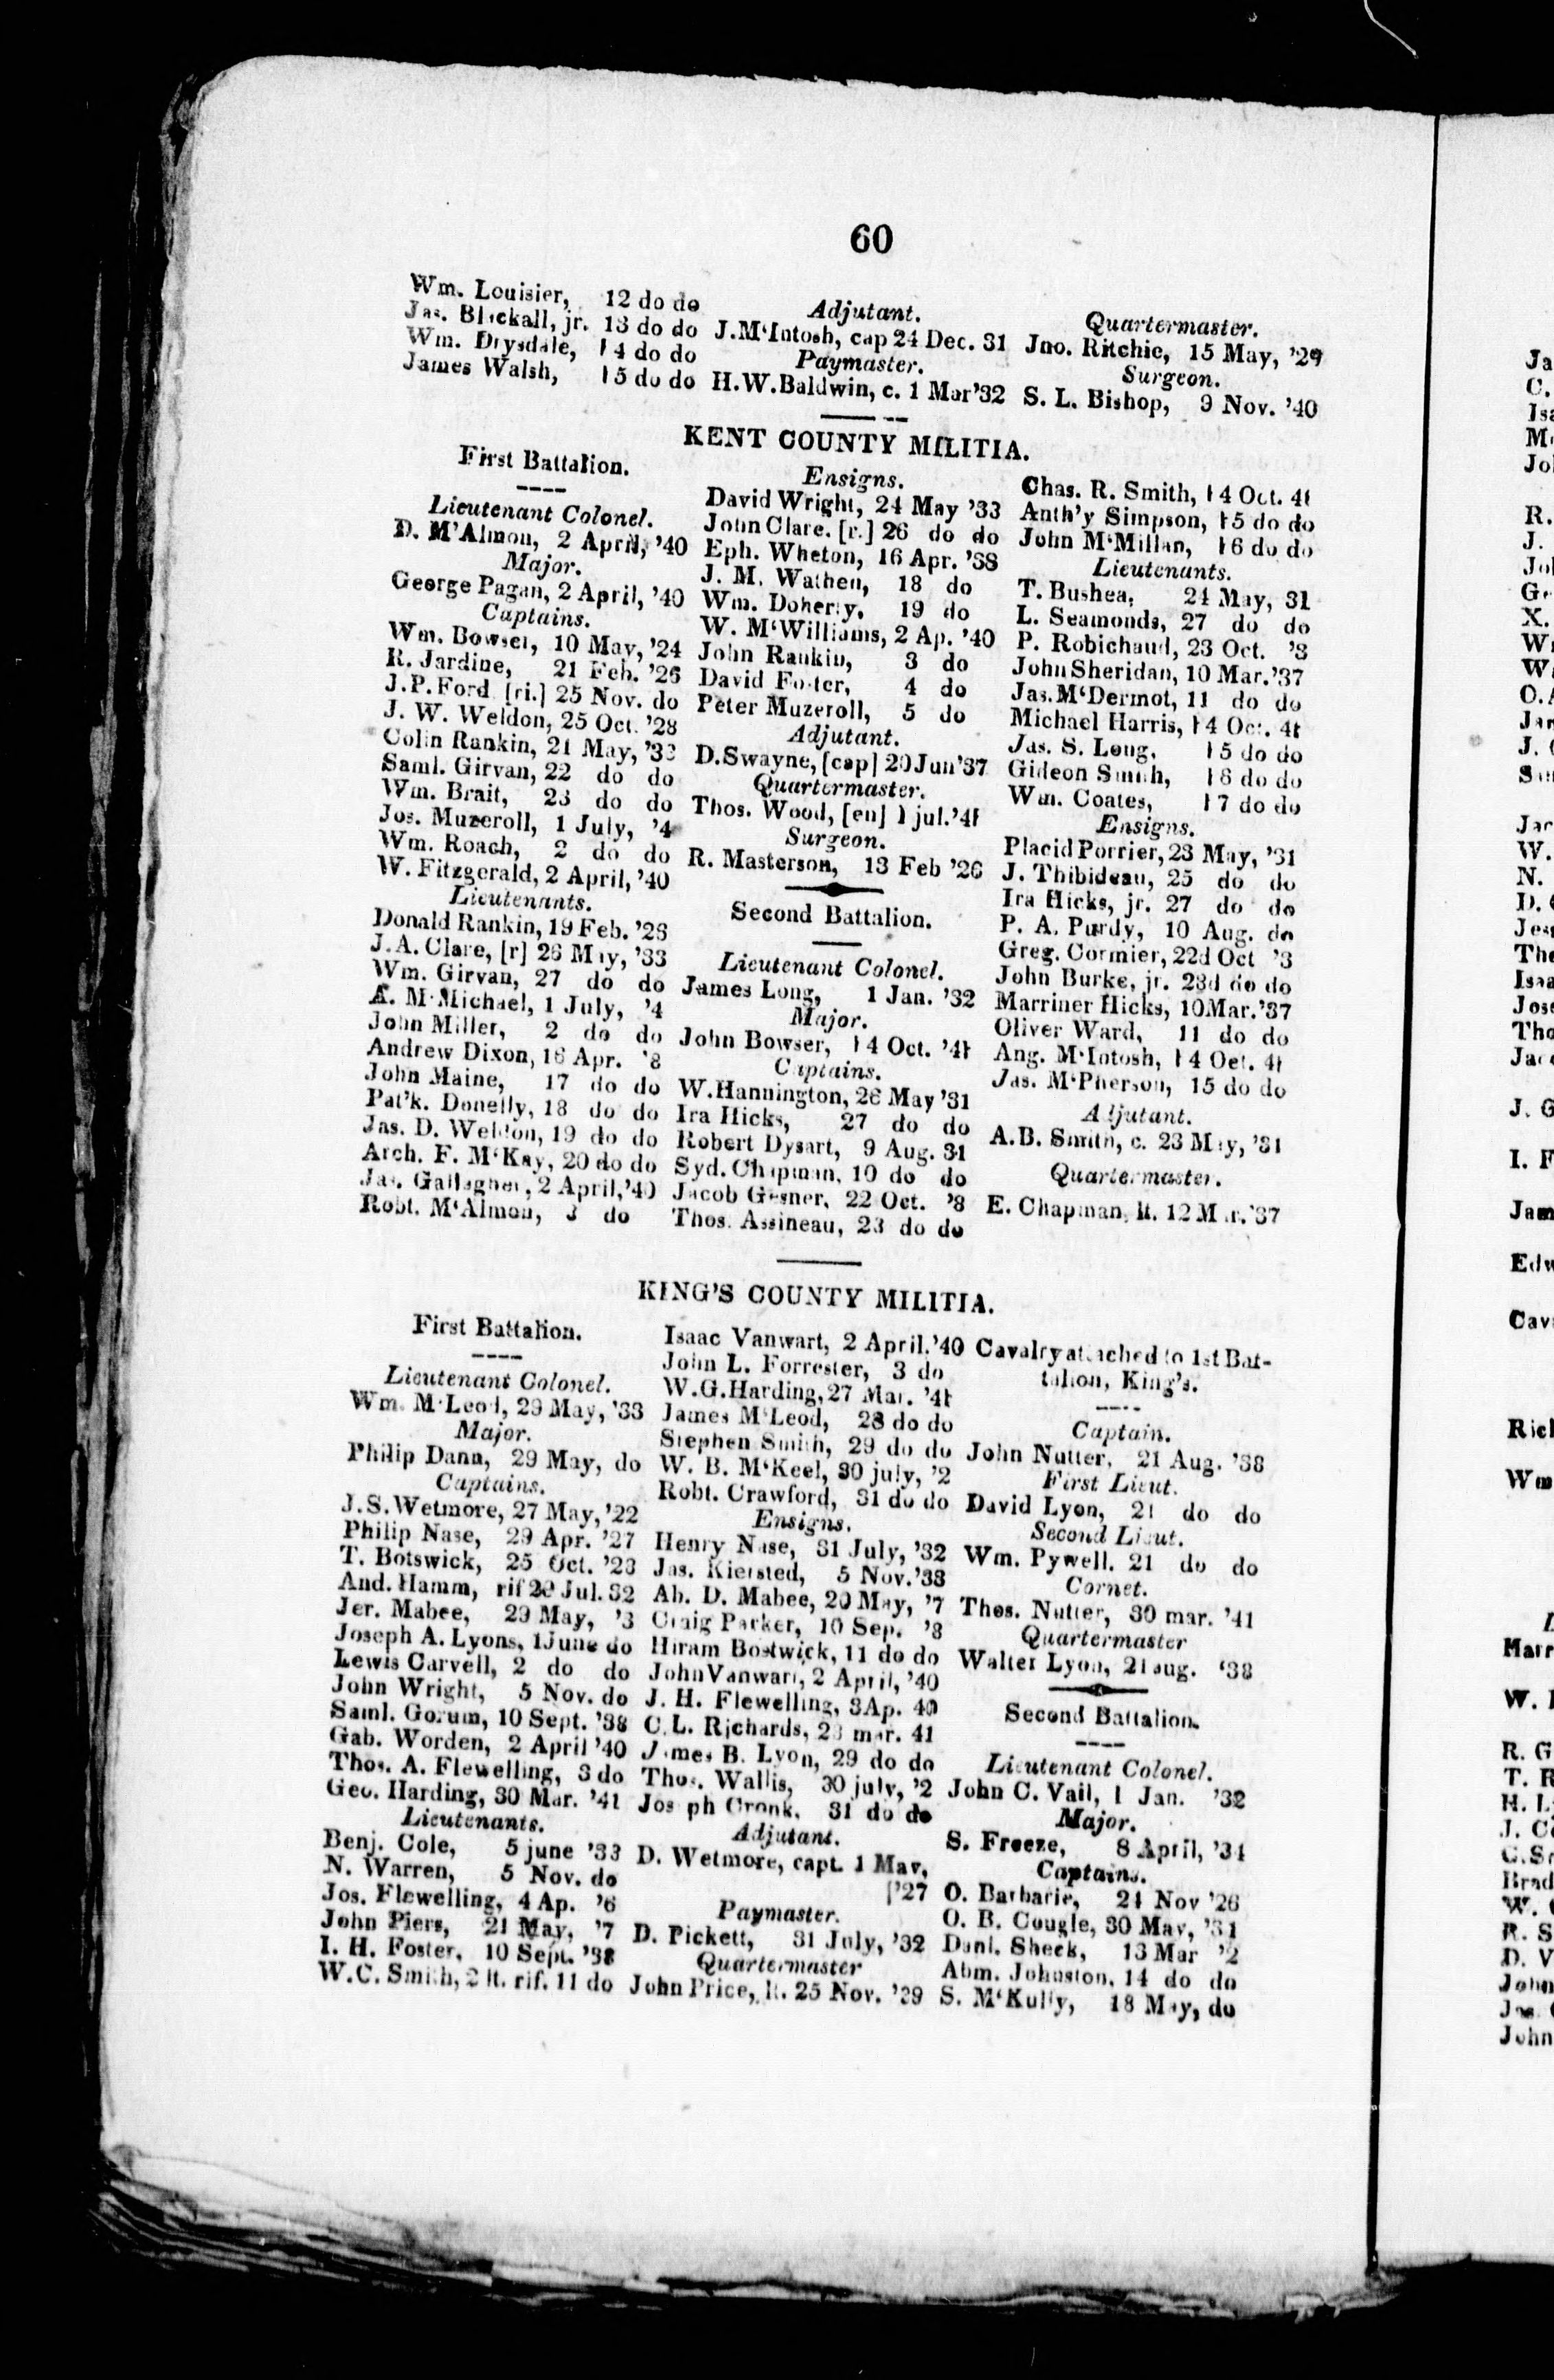 60
Wm. Louisier, 12 do do
Jas. Blackall, jr. 13 do do
Wm. Drysdale, 14 do do
James Walsh, 15 do do
Adjutant.
J. M‘Intosh, cap 24 Dec. 31
Paymaster.
H.W. Baldwin, c. 1 Mar’32
Quartermaster.
Jno. Ritchie, 15 May, ’29
Surgeon.
S. L. Bishop, 9 Nov. ’40
KENT COUNTY MILITIA.
First Battalion.
Lieutenant Colonel.
D. M’Almon, 2 April, ’40
Major.
George Pagan, 2 April, ’40
Captains.
Wm. Bowser, 10 May, ’24
R. Jardine, 21 Feb. ’26
J.P. Ford [ri.] 25 Nov. do
J. W. Weldon, 25 Oct. ’28
Colin Rankin, 21 May, ’33
Saml. Girvan, 22 do do
Wm. Brait, 23 do do
Jos. Muzeroll, 1 July, ’4
Wm. Roach, 2 do do
W. Fitzgerald, 2 April, ’40
Lieutenants.
Donald Rankin, 19 Feb. ’26
J. A. Clare, [r] 26 May, ’33
Wm. Girvan, 27 do do
A. M‘Michael, 1 July, ’4
John Miller, 2 do do
Andrew Dixon, 16 Apr. ’8
John Maine, 17 do do
Pat’k. Donelly, 18 do do
Jas. D. Weldon, 19 do do
Arch. F. M‘Kay, 20 do do
Jas. Gallagher, 2 April, ’40
Robt. M‘Almon, 3 do
Ensigns.
David Wright, 24 May ’33
John Clare. [r.] 26 do do
Eph. Wheton, 16 Apr. ’38
J. M. Wathen, 18 do
Wm. Doherty, 19 do
W. M‘Williams, 2 Ap. ’40
John Rankin, 3 do
David Foster, 4 do
Peter Muzeroll, 5 do
Adjutant.
D. Swayne, [cap] 20 Jun’37
Quartermaster.
Thos. Wood, [en] 1 jul.’41
Surgeon.
R. Masterson, 13 Feb ’26
Second Battalion.
Lieutenant Colonel.
James Long, 1 Jan. ’32
Major.
John Bowser, 14 Oct. ’41
Captains.
W. Hannington, 26 May ’31
Ira Hicks, 27 do do
Robert Dysart, 9 Aug. 31
Syd. Chapman, 10 do do
Jacob Gesner, 22 Oct. ’8
Thos. Assineau, 23 do do
Chas. R. Smith, 14 Oct. 41
Anth’y Simpson, 15 do do
John M‘Millan, 16 do do
Lieutenants.
T. Bushea, 24 May, 31
L. Seamonds, 27 do do
P. Robichaud, 23 Oct. ’8
John Sheridan, 10 Mar. ’37
Jas. M‘Dermot, 11 do do
Michael Harris, 14 Oct. 41
Jas. S. Long, 15 do do
Gideon Smith, 16 do do
Wm. Coates, 17 do do
Ensigns.
Placid Porrier, 23 May, ’31
J. Thibideau, 25 do do
Ira Hicks, jr. 27 do do
P. A. Purdy, 10 Aug. do
Greg. Cormier, 22d Oct ’3
John Burke, jr. 23d do do
Marriner Hicks, 10 Mar.’37
Oliver Ward, 11 do do
Ang. M‘Intosh, 14 Oct. 41
Jas. M‘Pherson, 15 do do
Adjutant.
A.B. Smith, c. 23 May, ’31
Quartermaster.
E. Chapman, lt. 12 Mar. ’37
KING’S COUNTY MILITIA.
First Battalion.
Lieutenant Colonel.
Wm. M‘Leod, 29 May, ’33
Major.
Philip Dann, 29 May, do
Captains.
J.S. Wetmore, 27 May, ’22
Philip Nase, 29 Apr. ’27
T. Botswick, 25 Oct. ’28
And. Hamm, rif 29 Jul. 32
Jer. Mabee, 29 May, ’3
Joseph A. Lyons, 1 June do
Lewis Carvell, 2 do do
John Wright, 5 Nov. do
Saml. Gorum, 10 Sept. ’38
Gab. Worden, 2 April ’40
Thos. A. Flewelling, 3 do
Geo. Harding, 30 Mar. ’41
Lieutenants.
Benj. Cole, 5 june ’33
N. Warren, 5 Nov. do
Jos. Flewelling, 4 Ap. ’6
John Piers, 21 May, ’7
I. H. Foster, 10 Sept. ’38
W.C. Smith, 2 lt. rif. 11 do
Isaac Vanwart, 2 April. ’40
John L. Forrester, 3 do
W.G. Harding, 27 Mar. ’41
James M‘Leod, 28 do do
Stephen Smith, 29 do do
W. B. M‘Keel, 30 july, ’2
Robt. Crawford, 31 do do
Ensigns.
Henry Nase, 31 July, ’32
Jas. Kiersted, 5 Nov.’33
Ab. D. Mabee, 20 May, ’7
Craig Parker, 10 Sep. ’8
Hiram Bostwick, 11 do do
John Vanwart, 2 April, ’40
J. H. Flewelling, 3 Ap. 40
C.L. Richards, 28 mar. 41
James B. Lyon, 29 do do
Thos. Wallis, 30 july, ’2
Jos ph Cronk, 31 do do
Adjutant.
D. Wetmore, capt. 1 May,
[’27
Paymaster.
D. Pickett, 31 July, ’32
Quartermaster
John Price, lt. 25 Nov. ’29
Cavalry attached to 1st Bat-
talion, King’s.
Captain.
John Nutter, 21 Aug. ’38
First Lieut.
David Lyon, 21 do do
Second Lieut.
Wm. Pywell. 21 do do
Cornet.
Thos. Nutter, 30 mar. ’41
Quartermaster
Walter Lyon, 21 aug. ‘38
Second Battalion.
Lieutenant Colonel.
John C. Vail, 1 Jan. ’32
Major.
S. Freeze, 8 April, ’34
Captains.
O. Barbarie, 24 Nov ’26
O. B. Cougle, 30 May, ’31
Danl. Sheek, 13 Mar ’2
Abm. Johnston, 14 do do
S. M‘Kully, 18 May, do